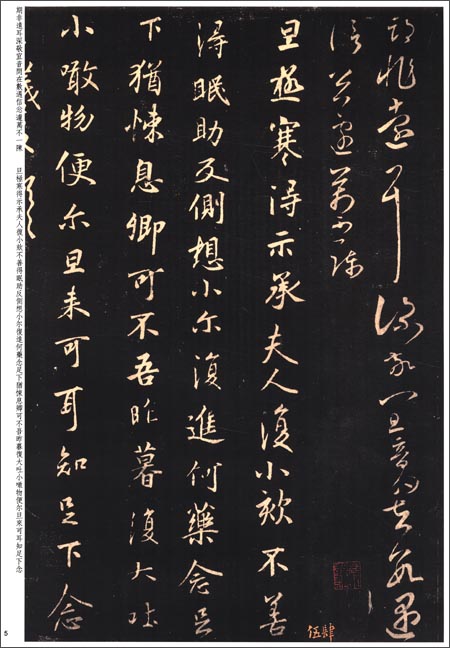 期非遠耳深敬宜音問在數遇
信忩遽万不一陳
旦極寒得示承夫人復小欬不善
得眠助反側想小尔復進何藥念足
下猶悚息卿可不吾昨暮復大吐
小噉物便尔旦来可耳知足下念
伍肆
期非遠耳深敬宜音問在數遇信忩遽萬不一陳　旦極寒得示承夫人復小欬不善得眠助反側想小尔復進何藥念足下猶悚息卿可不吾昨暮復大吐小噉物便尔旦來可耳知足下念
5